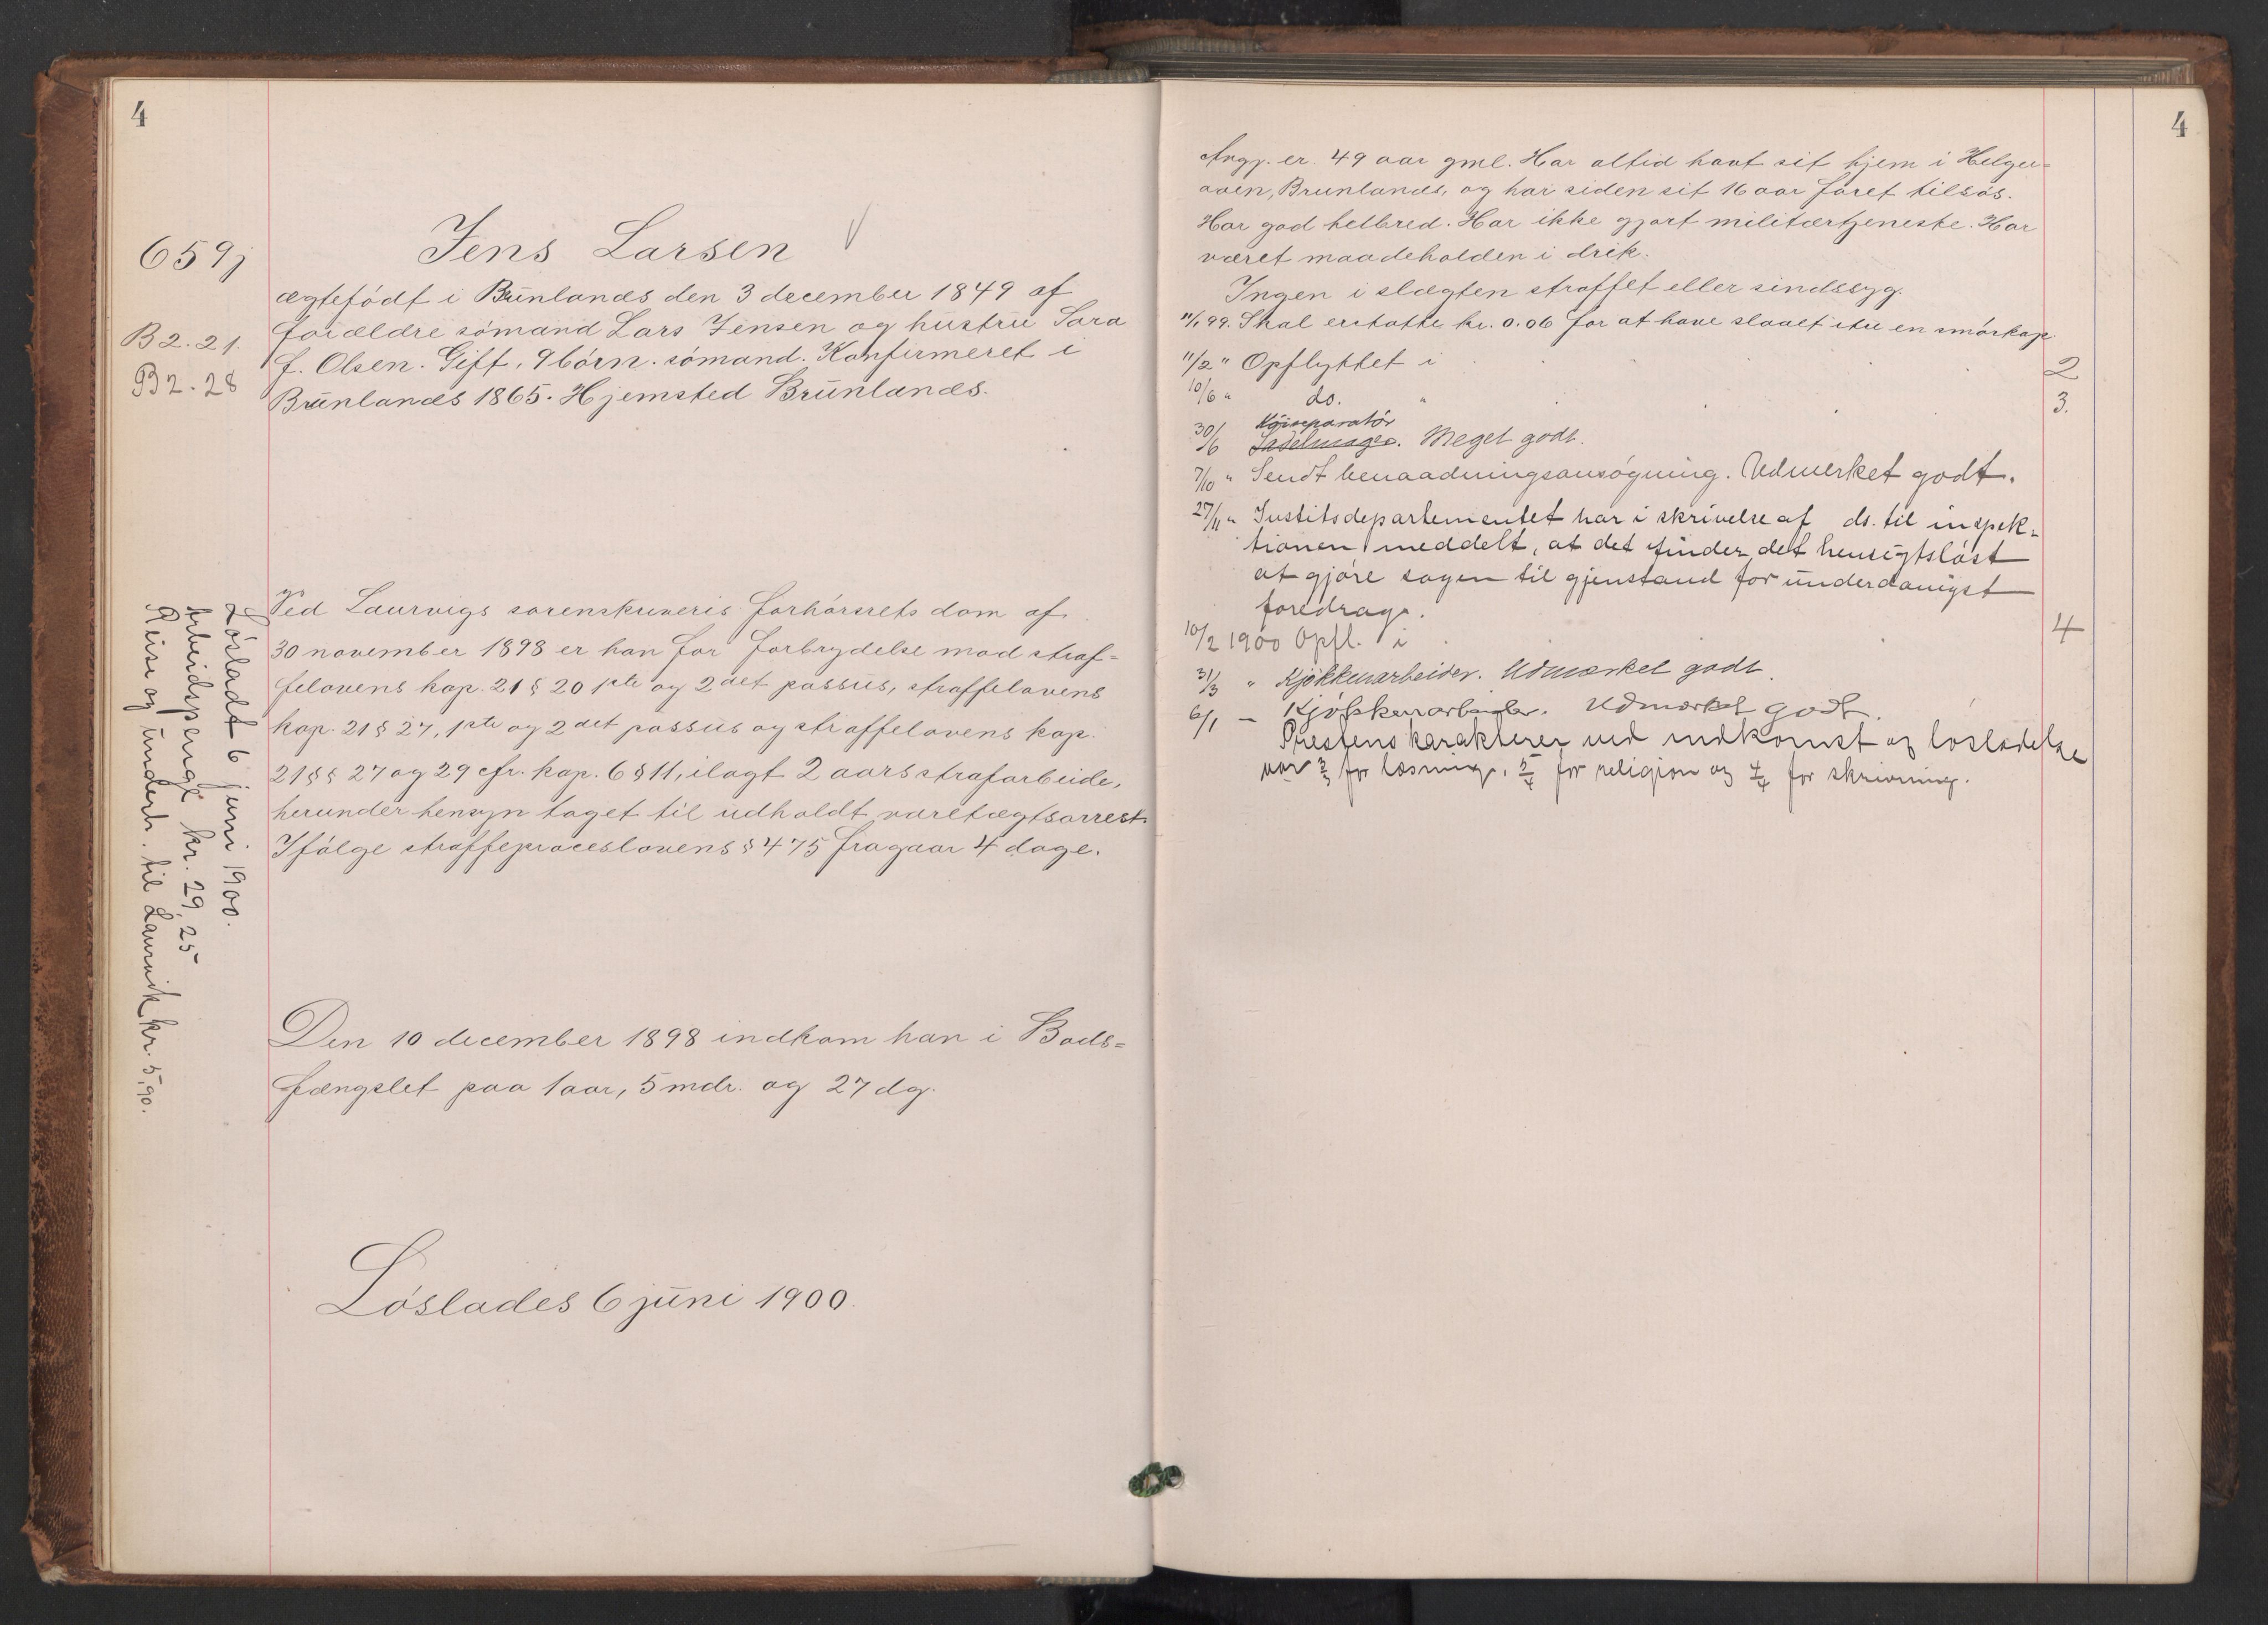 4
659j
Jens Larsen
ægtefödt i Brunlanæs den 3 december 1849 af
B2.21.
forældre sömand Lars Jensen og hustru Sara
B2.28
f. Olsen. Gift, 9 börn. sömand. Konfirmeret i
Brunlanæs 1865. Hjemsted Brunlanæs.
Ved Laurvigs sorenskriveris forhörsrets dom af
30 november 1898 er han for forbrydelse mod straf=
felovens kap. 21 § 20 1ste og 2det passus, straffelovens
kap. 21 § 27, 1ste og 2det passus og straffelovens kap.
21 §§ 27 og 29 cfr. kap. 6 § 11, ilagt 2 aars strafarbeide,
herunder hensyn taget til udholdt varetægtsarrest.
Ifölge straffeproceslovens § 475 fragaar 4 dage.
Lösladt 6 juni 1900.
Arbeidspenge kr. 29,25
Reise og underh. til Laurvik kr. 5,90.
Den 10 december 1898 indkom han i Bods=
fængslet paa 1 aar, 5 mdr. og 27 dg.
Löslades 6 juni 1900.
4
Angj. er 49 aar gml. Har altid havt sit hjem i Helge=
aaen, Brunlanæs, og har siden sit 16 aar faret tilsös.
Har god helbred. Har ikke gjort militærtjeneste. Har
været maadeholden i drik.
Ingen i slægten straffet eller sindssyg.
11/1 99. Skal erstatte kr. 0.06 for at have slaaet itu en smörkop
11/2 " Opflyttet i 2
10/6 " do. " 3.
Köiseparatör
30/6 Sadelmager. Meget godt.
7/10 " Sendt benaadningsansögning. Udmerket godt.
27/11 " Justitsdepartementet har i skrivelse af ds. til inspek=
tionen meddelt, at det finder det hensigtslöst
at gjöre sagen til gjenstand for underdanigst
foredrag.
10/2 1900 Opfl. i 4
31/3 " Kjökkenarbeider. Udmærket godt.
6/1 — Kjökkenarbeider. Udmærket godt.
Prestens karakterer ved indkomst og losladelse
var 3/3 for læsning, 5/4 for religion og 4/4 for skrivning.